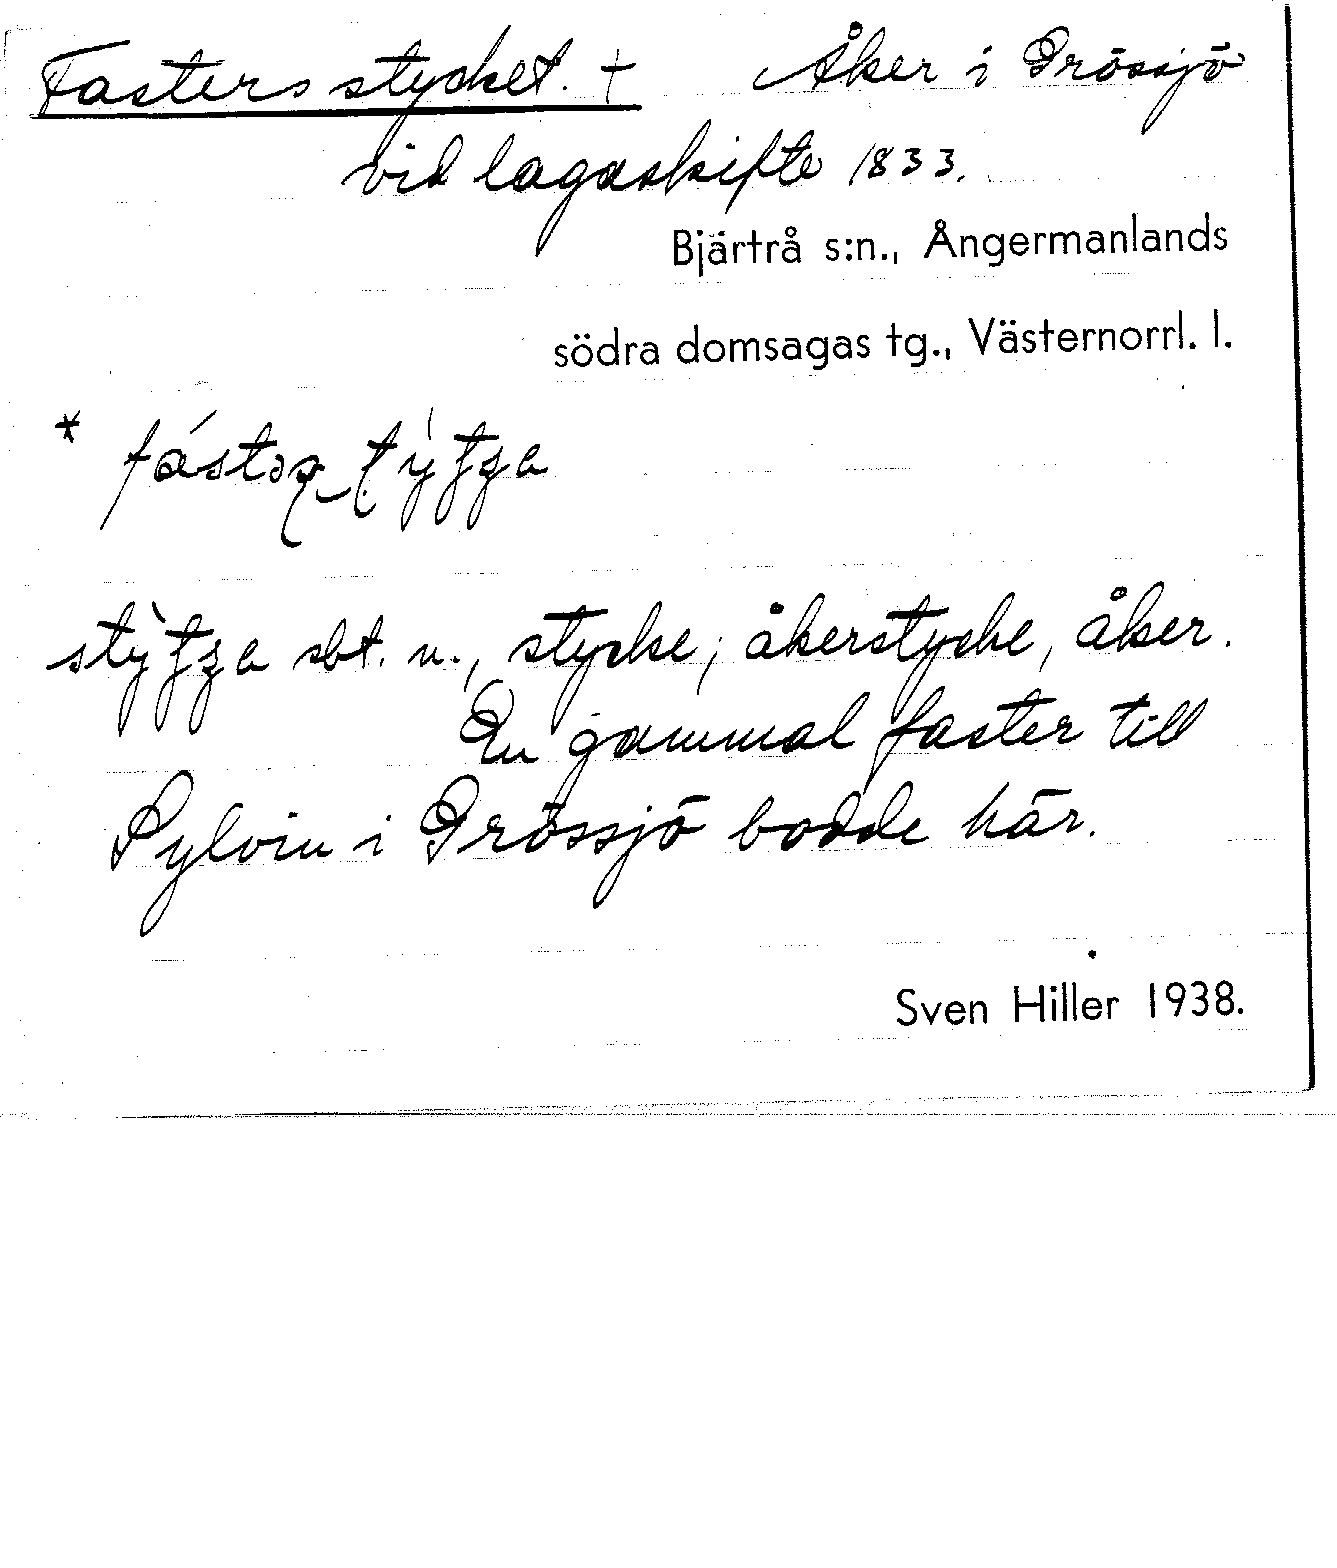 Fasters stycket. † Åker i Grössjö
vid lagaskifte 1833.
Bjärtrå s:n., Ångermanlands
södra domsagas tg., Västernorrl. l.
stycke; åkerstycke, åker.
En gammal faster till
Sylvin i Grössjö bodde här.
Sven Hiller 1938.